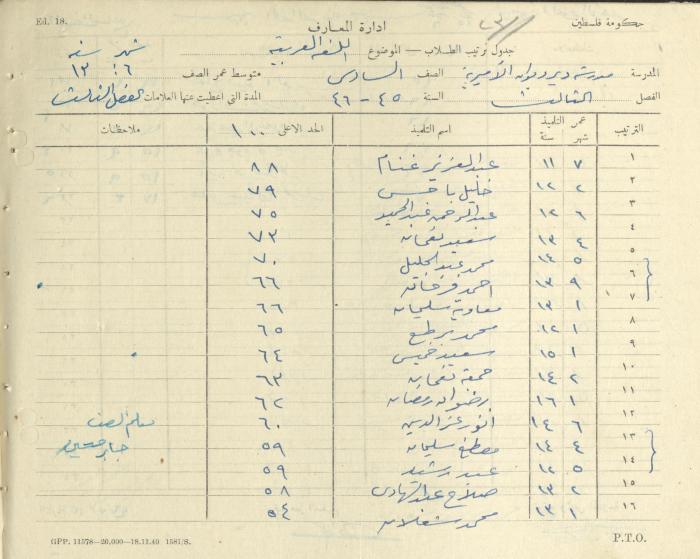 Ed. 18.
حكومة فلسطين
ادارة المعارف
جدول ترتيب الطلاب — الموضوع اللغة العربية
شهر سنة
المدرسة مدرسة دير ديوان الأميرية الصف السادس متوسط عمر الصف ٦ : ١٢
الفصل الثالث السنة ٤٥ - ٤٦ المدة التي اعطيت عنها العلامات الفصل الثالث
الترتيب عمر التلميذ شهر سنة اسم التلميذ الحد الاعلى ١٠٠ ملاحظات
١ ٧ ١١ عبد العزيز غنام ٨٨
٢ ٢ ١٢ خليل ٧٩
٣ ٦ ١٢ عبد الرحمن عبد الحميد ٧٥
٤ ٤ ١٣ سعيد نعمان ٧٣
٥ ٥ ١٤ محمد عبد الجليل ٧٠
٦ ٩ ١٣ احمد فرحان ٦٦
٧ ١ ١٣ معاوية سليمان ٦٦
٨ ١ ١٢ محمد ٦٥
٩ ١ ١٥ سعيد خميس ٦٤
١٠ ٢ ١٤ جمعة نعمان ٦٣
١١ ١ ١٦ رضوان رمضان ٦٢
١٢ ٦ ١٤ أنور عز الدين ٦٠ معلم الصف
١٣ ٤ ١٤ مصطفى سليمان ٥٩ جابر
١٤ ٥ ١٢ عبد رشيد ٥٩
١٥ ٢ ١٣ صلاح عبد الهادي ٥٨
١٦ ١ ١٣ محمد شعلان ٥٤
GPP. 11578—20,000—18.11.40 1581/S.
P.T.O.